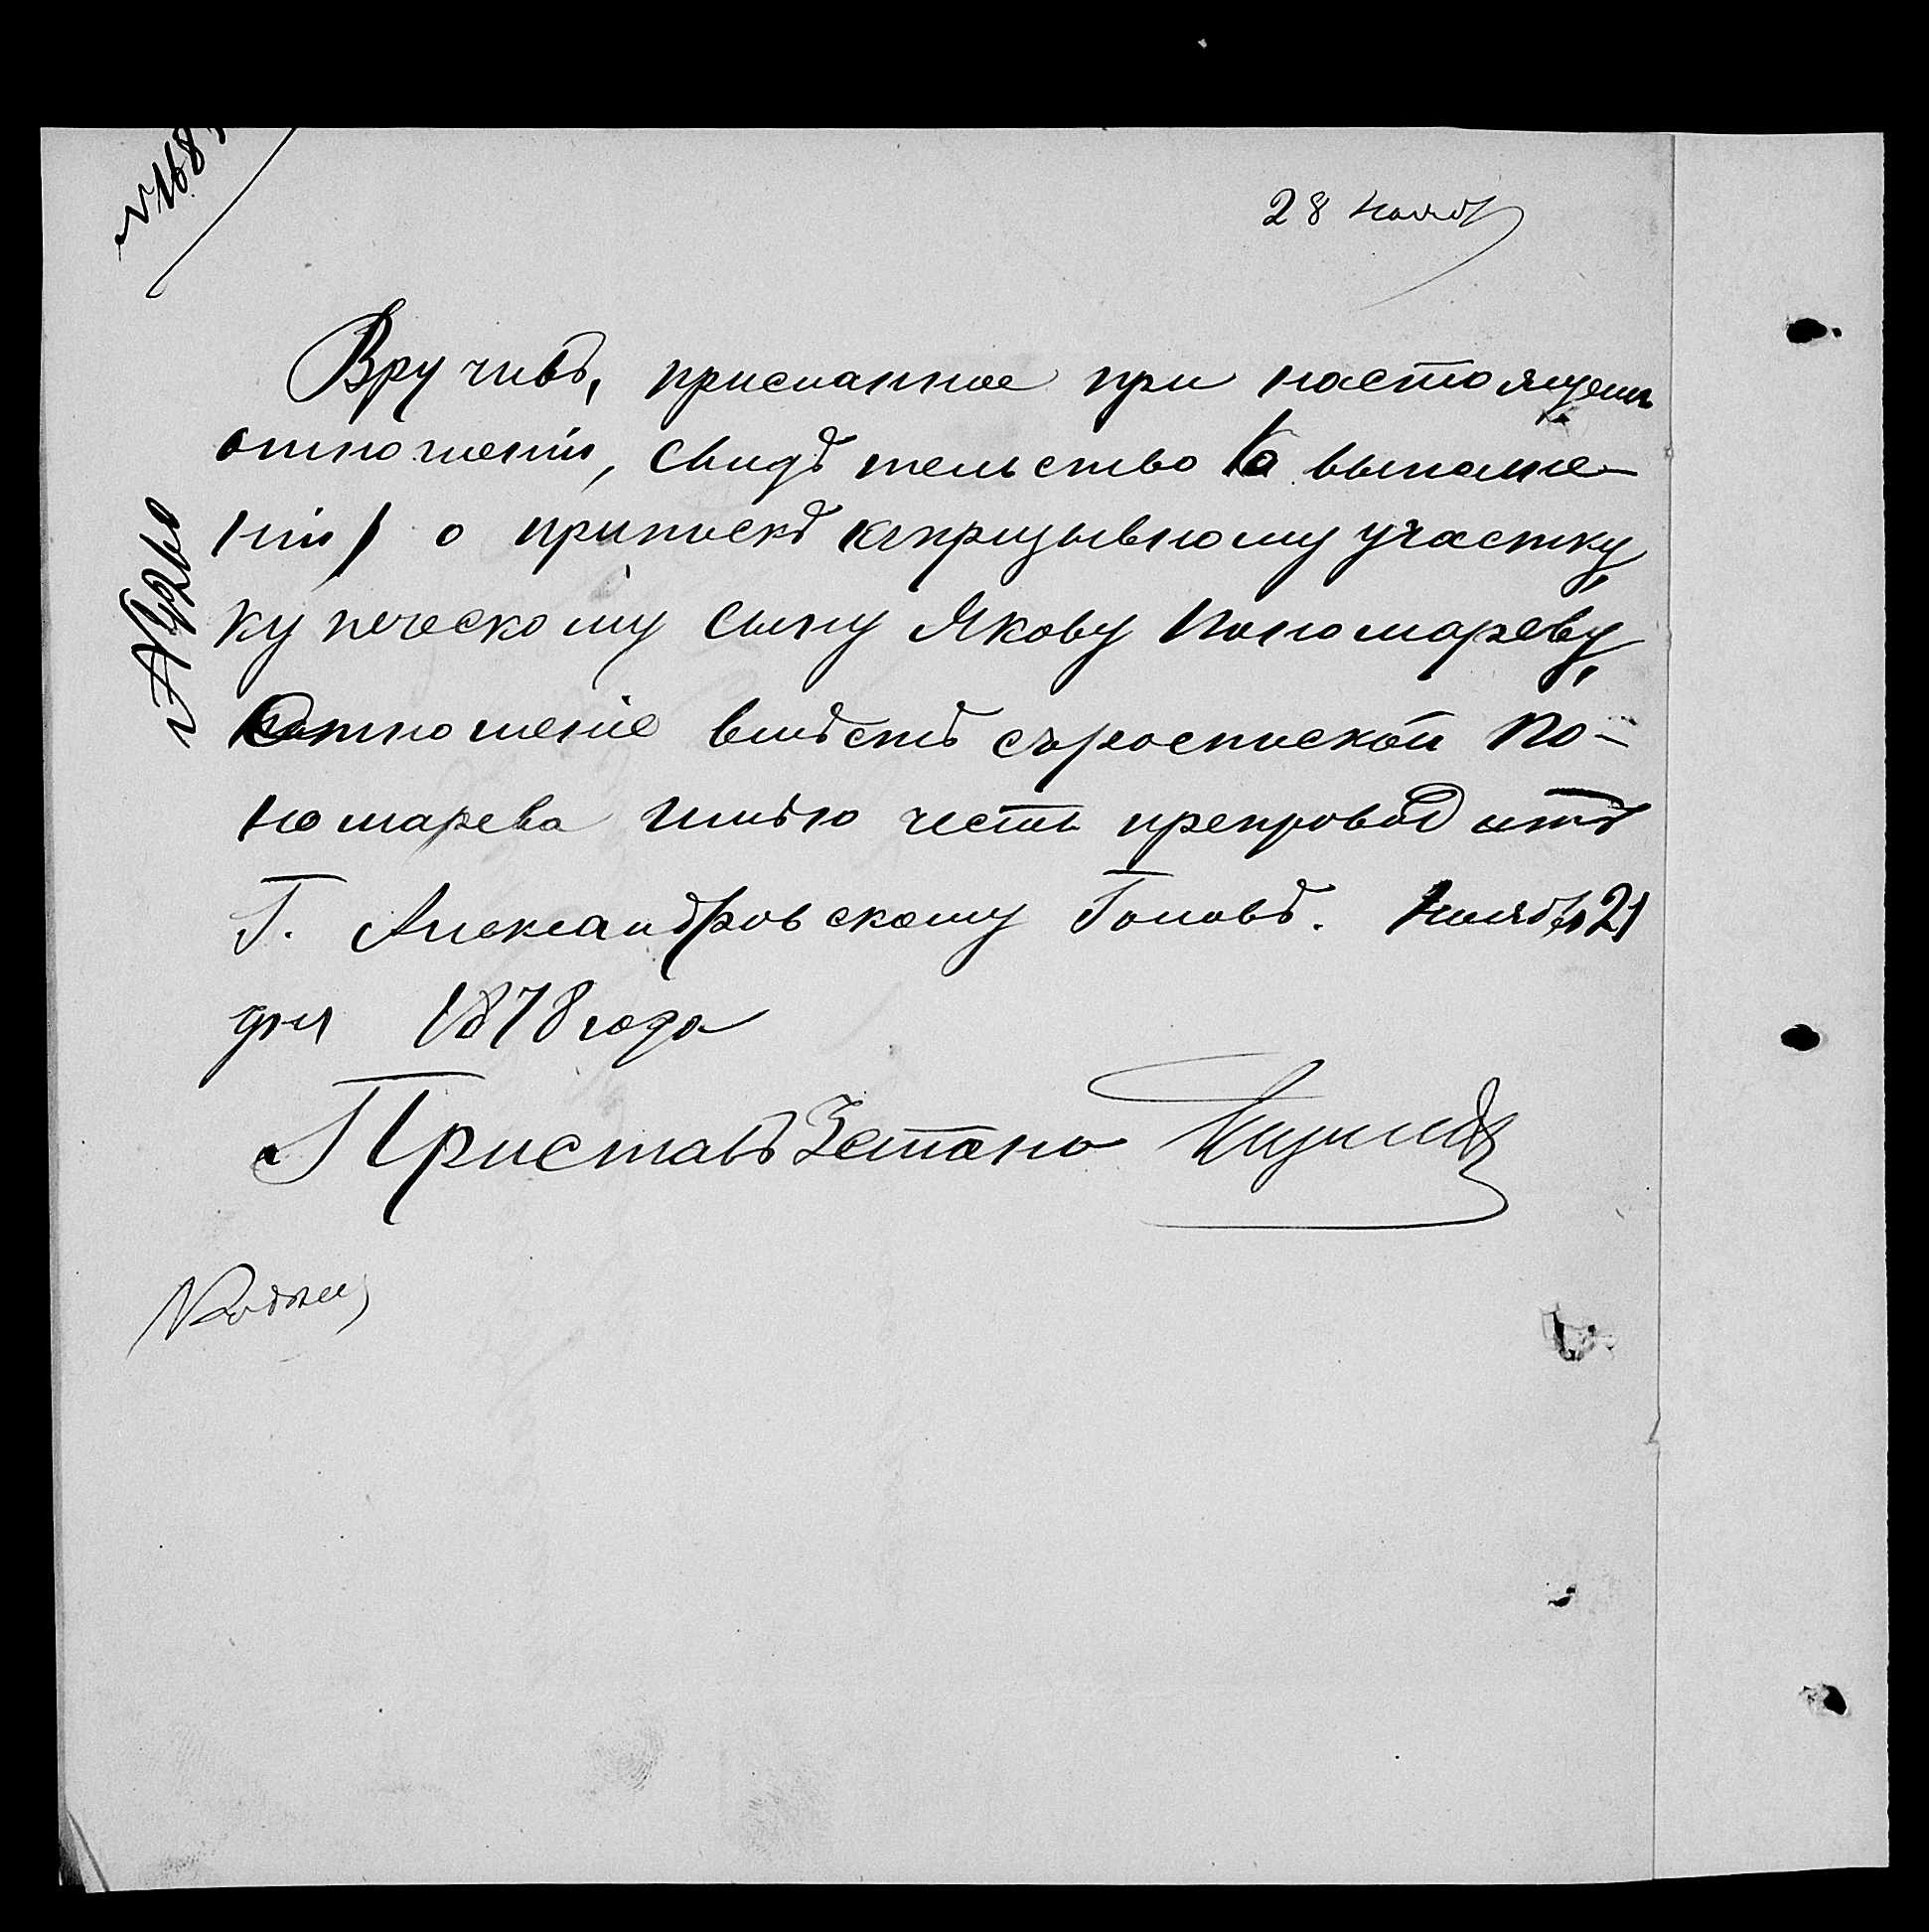 28 Нояб
Вручивъ, присланное при настоящемъ
отношеніи, свидѣтельство (о выполне-
ніи) о припискѣ къ призывному участку,
купеческому сыну Якову Пономареву,
отношеніе вмѣстѣ съ роспиской По-
номарева имѣю честь препроводить
Г. Александровскому Головѣ. Ноября 21
дня 1878 года
Приставъ 3 стана